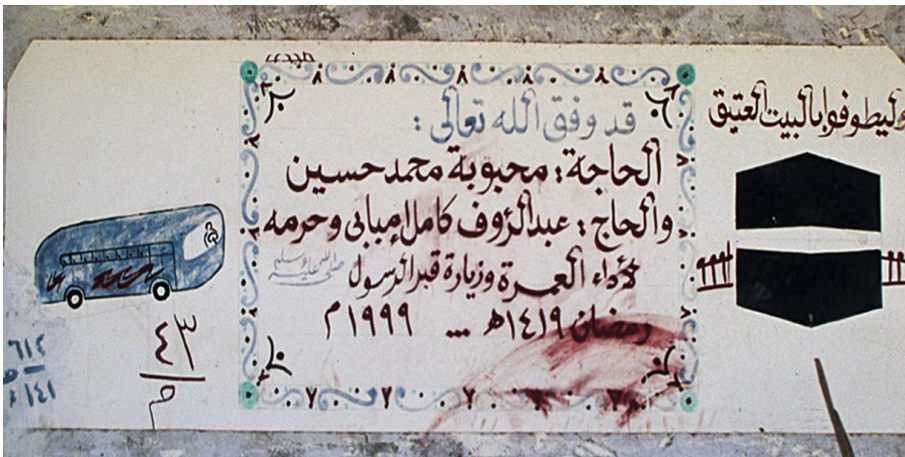 وليطوفوا بالبيت العتيق
قد وفق الله تعالى :
الحاجة : محبوبة محمد حسين
والحاج : عبد الرؤوف كامل إمبابى وحرمه
لأداء العمرة وزيارة قبر الرسول صلى الله عليه وسلم
رمضان ١٤١٩ھ ... ١٩٩٩ م
٤٣
م
٦١٢
١٤١